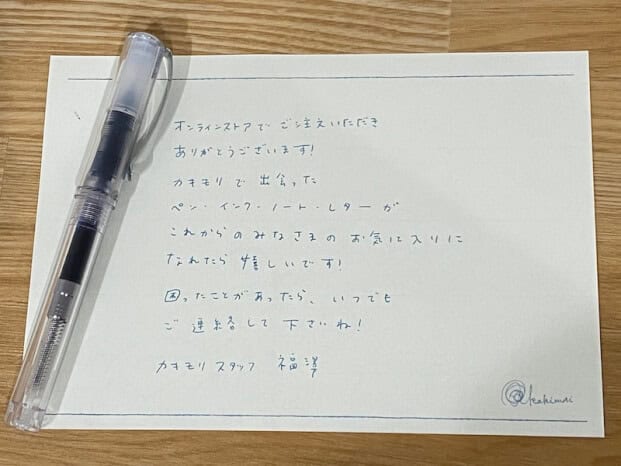 オンラインストアで ご注文いただき
ありがとうございます!
カキモリで 出会った
ペン・インク・ノート・レターが
これからのみなさまの お気に入りに
なれたら 嬉しいです!
困ったことがあったら、いつでも
ご連絡して下さいね!
カキモリ スタッフ 福澤